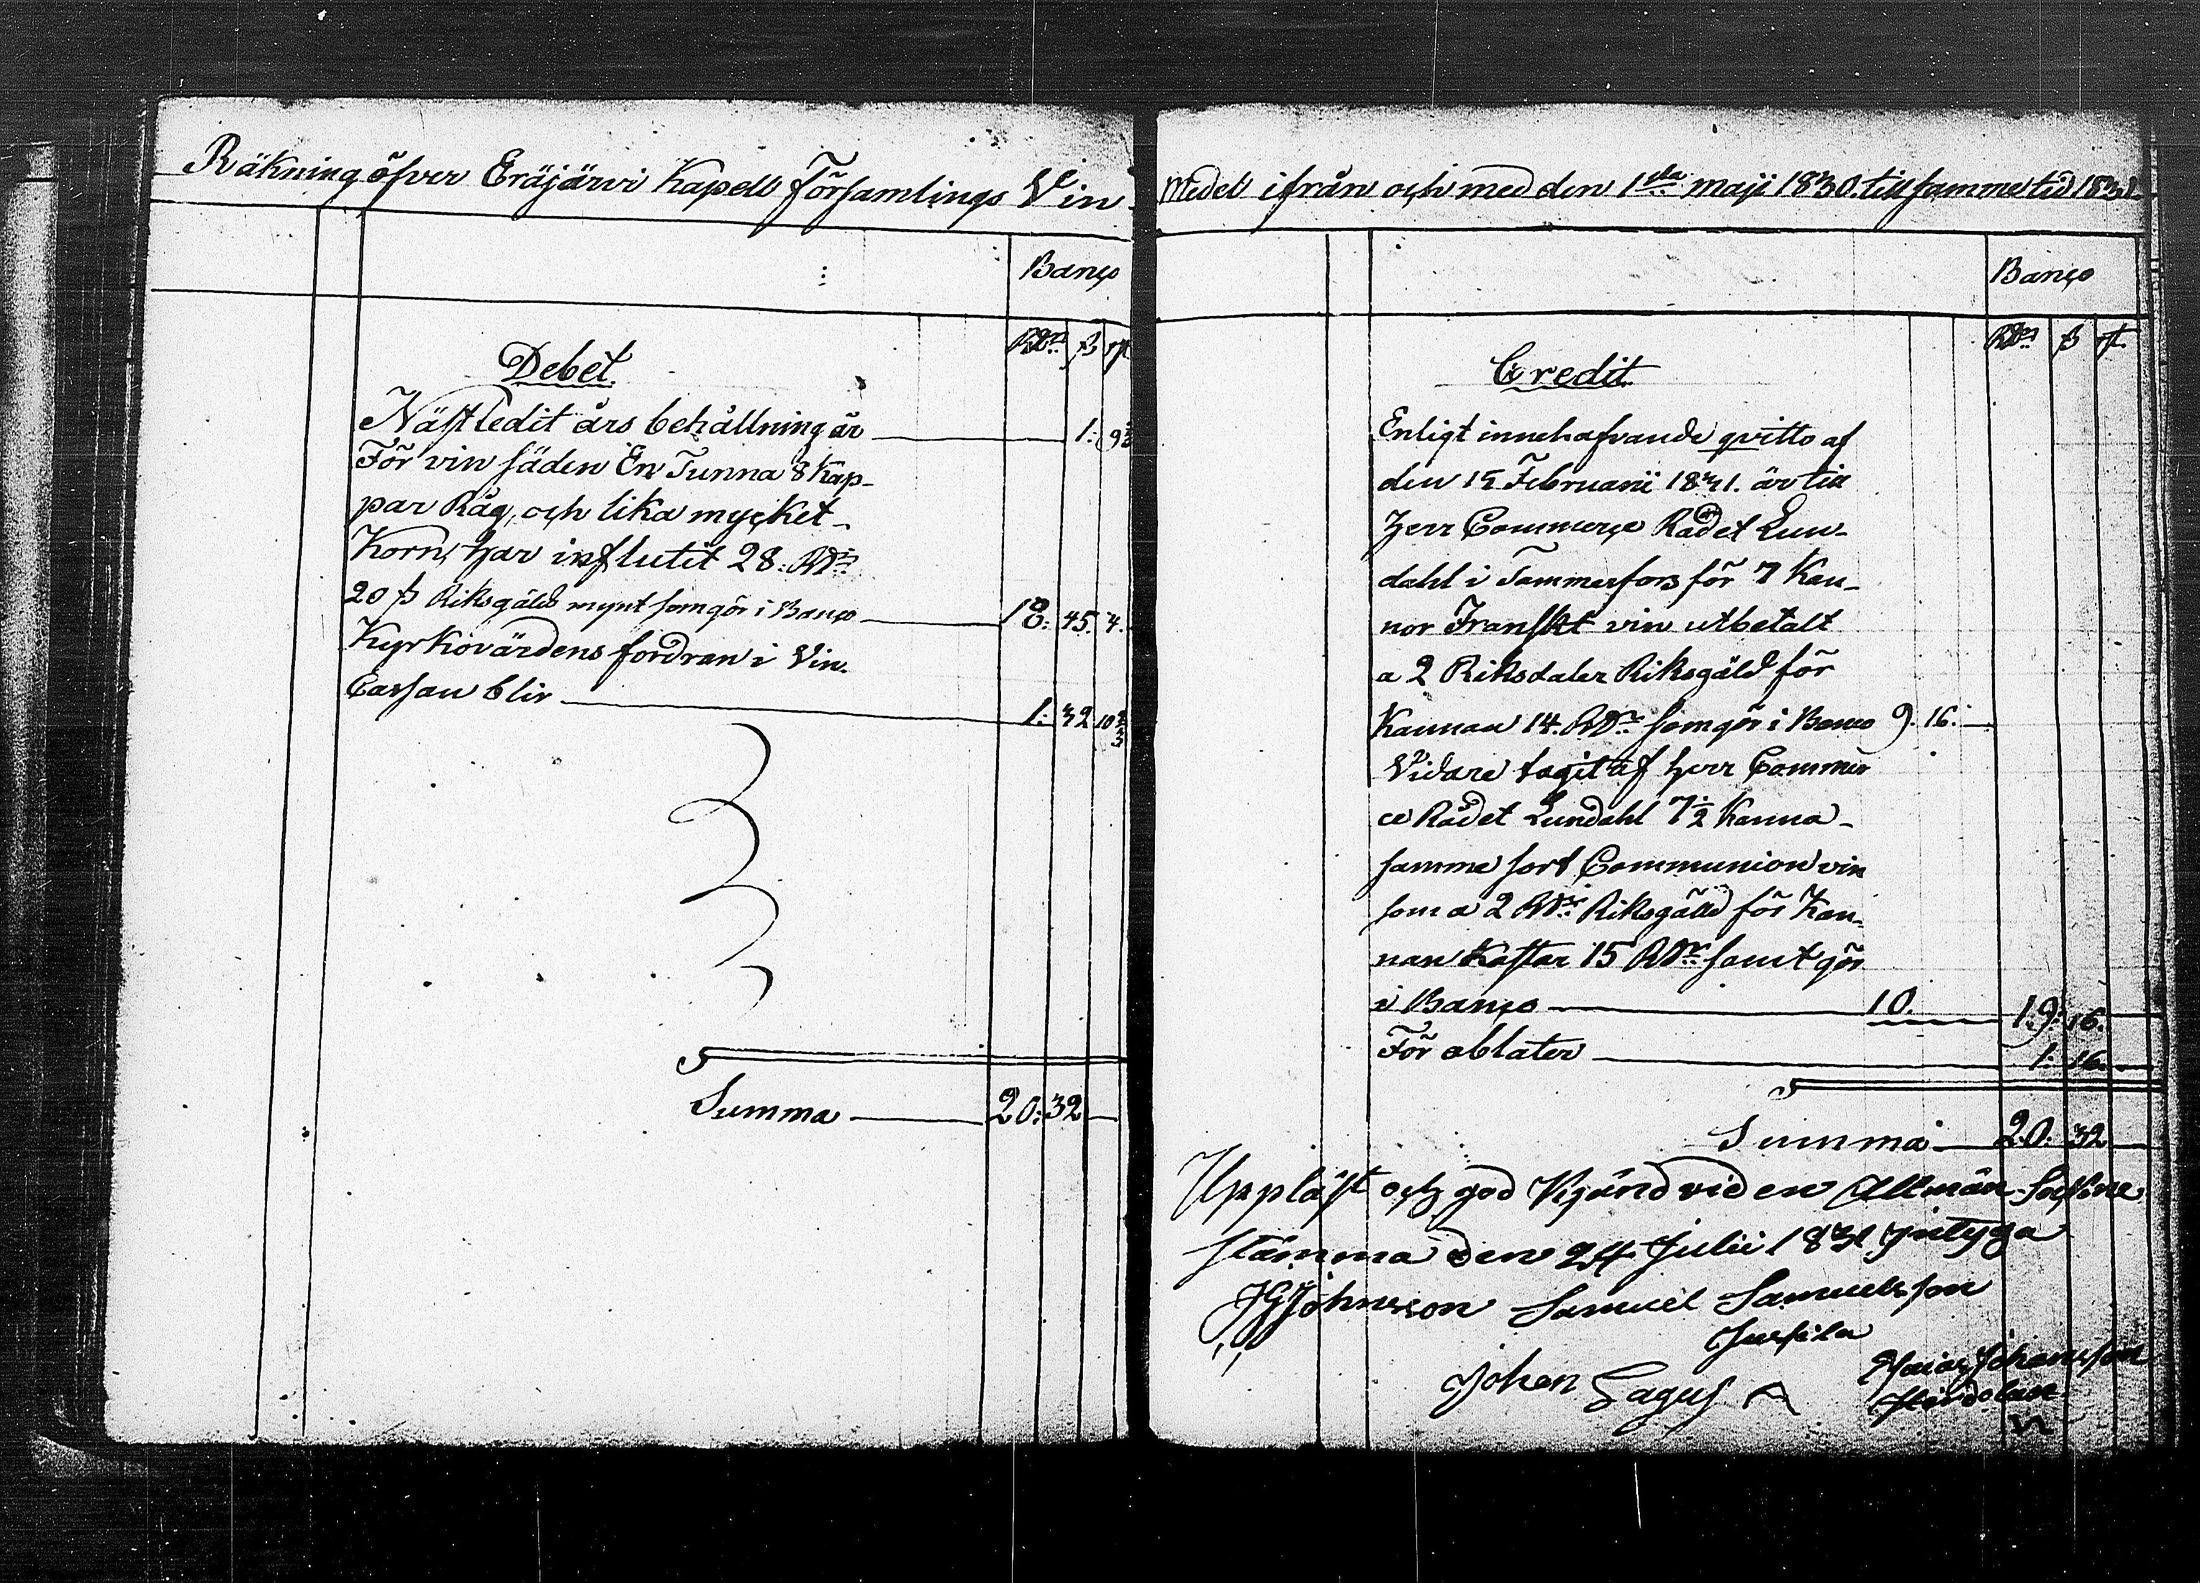 Räkning öfver Eräjärvi Kapell Församlings Vin
Banco
RDr ß rst
Debet
Näst ledit års behållning är 1: 9 1/3
För vin säden En Tunna 8 Kap-
par Råg, och lika mycket
Korn, har influtit 28. RDr
20 ß Riksgälds mynt som gör i Banco 18: 45. 4.
Kyrkovärdens fordran i Vin
Cassan blir 1: 32 10 2/3
Summa 20: 32
Medel ifrån och med den 1sta maji 1830. till samma tid 1831.
Banco
RDr ß rst.
Credit
Enligt innehafvande qvitto af
den 15 Februarii 1831. är till
Herr Commerce Rådet Lun-
dahl i Tammerfors för 7 Kan-
nor Franskt vin utbetalt
a 2 Riksdaler Riksgäld för
Kannan 14. RDr som gör i Banco 9. 16.
Vidare tagit af Herr Commer
ce Rådet Lundahl 7 1/2 Kanna
samma sort Communion vin
som a 2 RDr Riksgäld för Kan-
nan Kostar 15 RDr samt gör
i Banco 10. 19: 16.
För oblater 1: 16.
Summa 20: 32
Uppläst och god Kjänd vid en Allmän Sockne
stämma den 24 Julii 1831 intyga
Johnsson Samuel Samuelsson
Johan Lagus